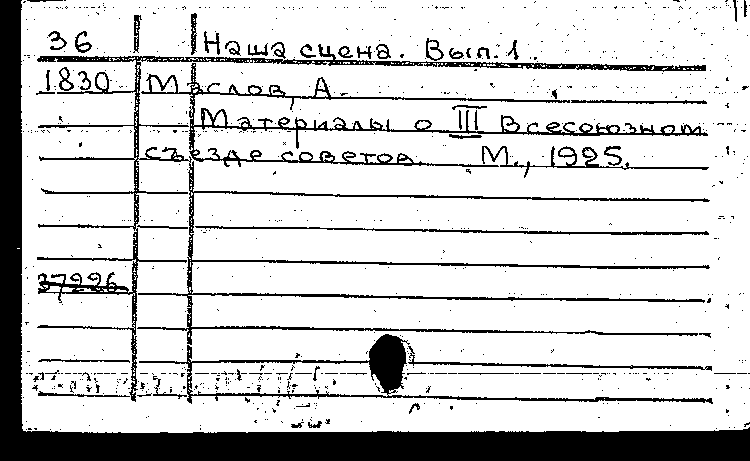 36 Наша сцена. Вып. 1.
1830 Маслов, А.
Материалы о III Всесоюзном
съезде советов. М., 1925.
37226